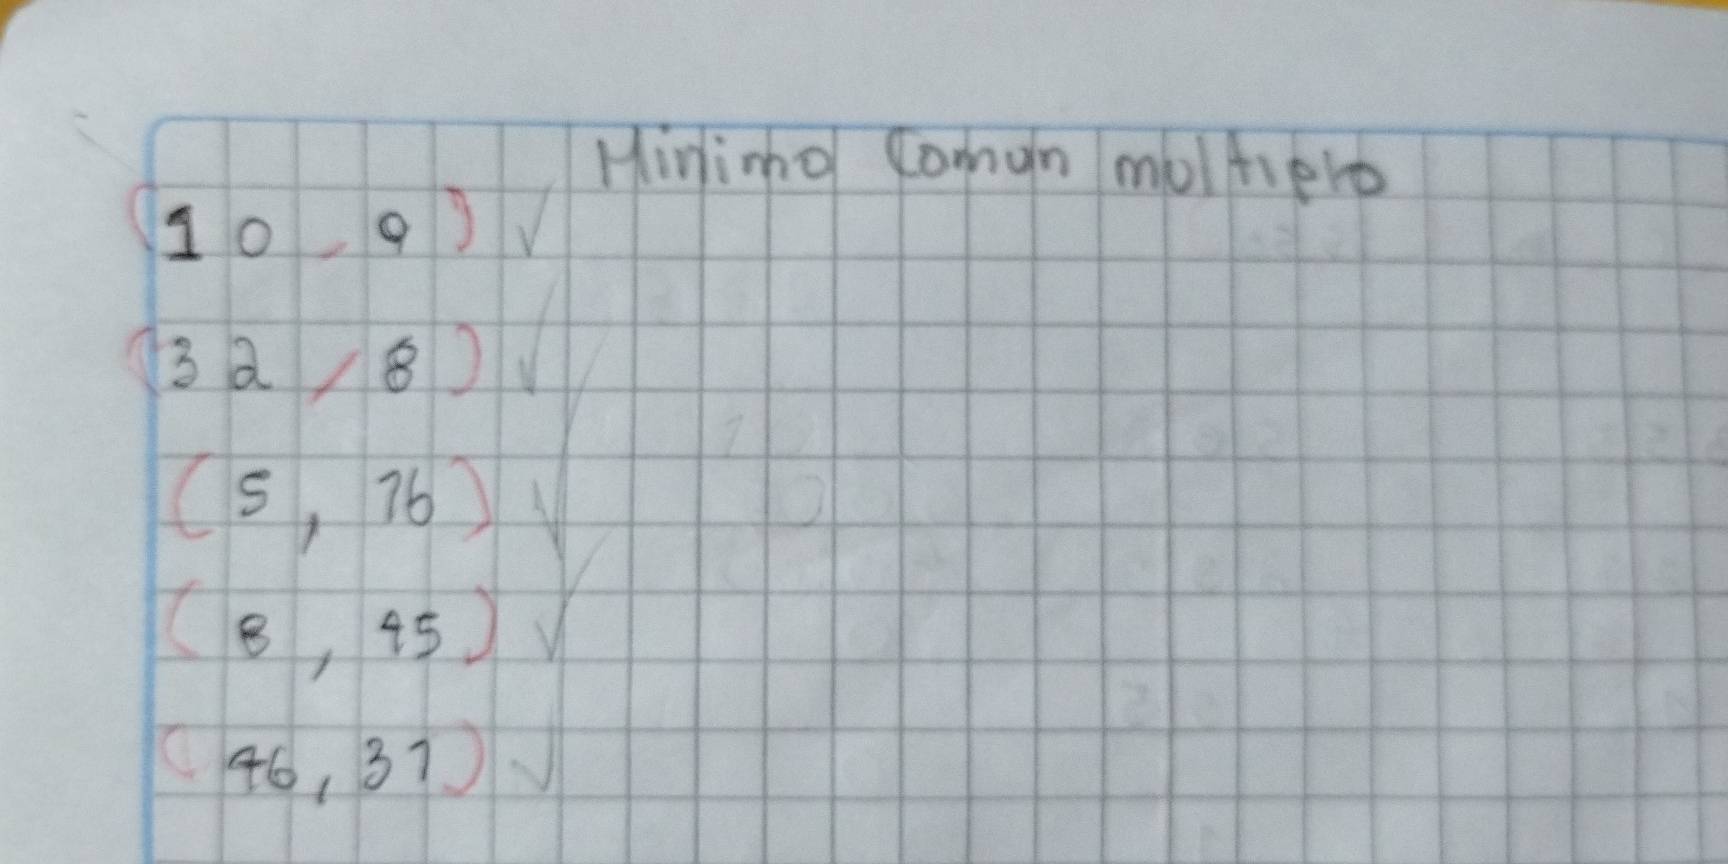 Minimo Comun multiplo
(10, 9) ✓
(32, 8) ✓
(5, 76) ✓
(8, 45) ✓
(46, 37) ✓